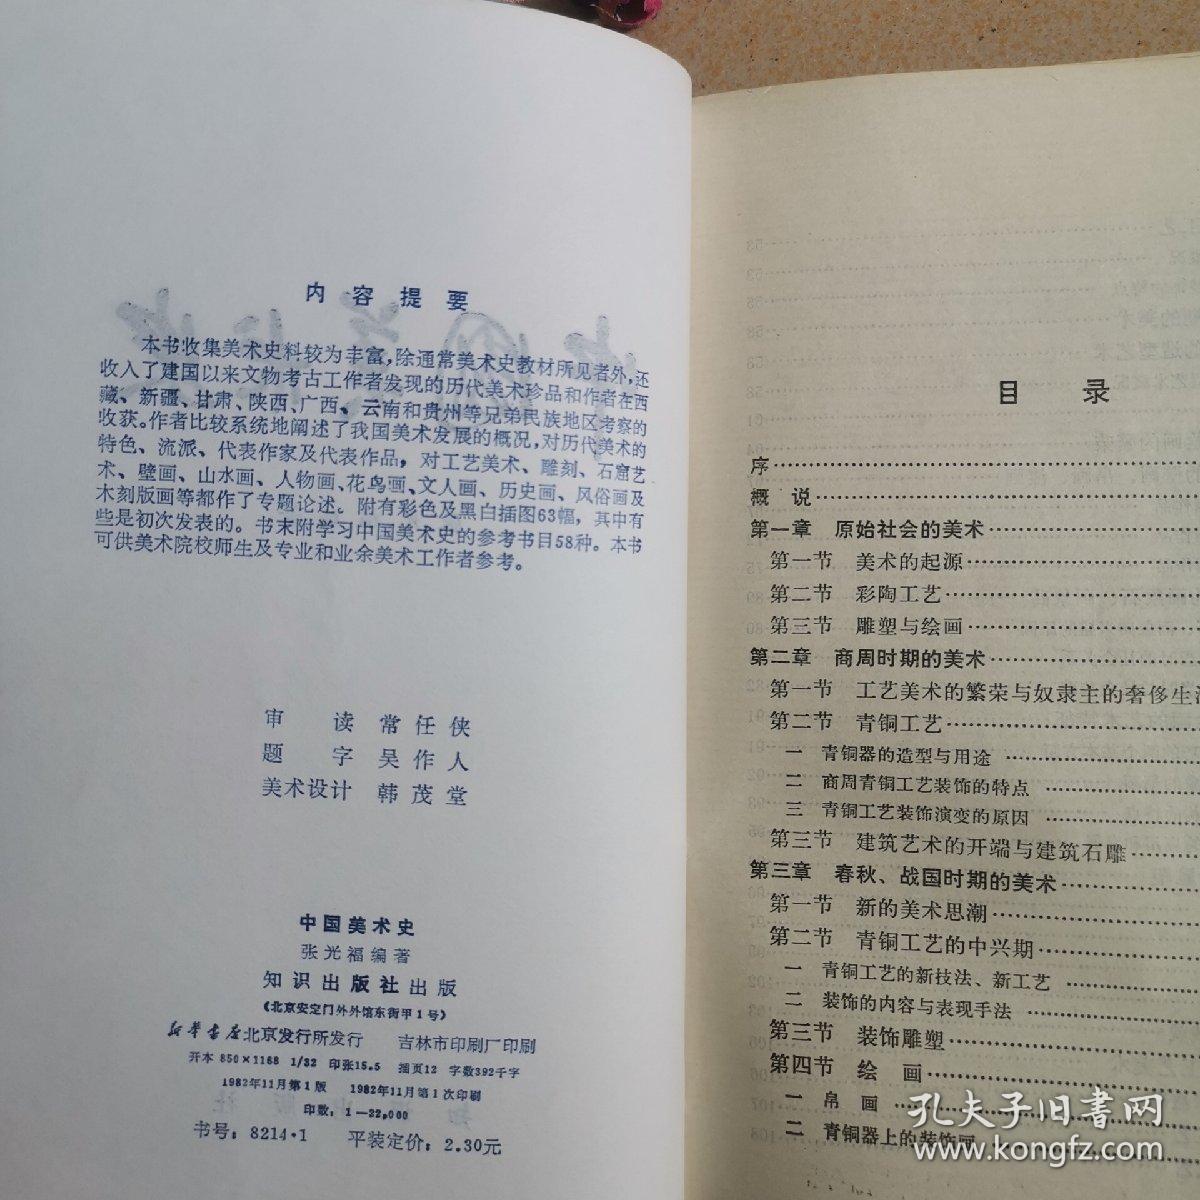 内容提要
本书收集美术史料较为丰富，除通常美术史教材所见者外，还
收入了建国以来文物考古工作者发现的历代美术珍品和作者在西
藏、新疆、甘肃、陕西、广西、云南和贵州等兄弟民族地区考察的
收获。作者比较系统地阐述了我国美术发展的概况，对历代美术的
特色、流派、代表作家及代表作品，对工艺美术、雕刻、石窟艺
术、壁画、山水画、人物画、花鸟画、文人画、历史画、风俗画及
木刻版画等都作了专题论述。附有彩色及黑白插图63幅，其中有
些是初次发表的。书末附学习中国美术史的参考书目58种。本书
可供美术院校师生及专业和业余美术工作者参考。
审读 常任侠
题字 吴作人
美术设计 韩茂堂
中国美术史
张光福编著
知识出版社出版
（北京安定门外外馆东街甲1号）
新华书店北京发行所发行 吉林市印刷厂印刷
开本 850×1168 1/32 印张15.5 插页12 字数392千字
1982年11月第1版 1982年11月第1次印刷
印数：1—22,000
书号：8214·1 平装定价：2.30元
目录
序
概说
第一章 原始社会的美术
第一节 美术的起源
第二节 彩陶工艺
第三节 雕塑与绘画
第二章 商周时期的美术
第一节 工艺美术的繁荣与奴隶主的奢侈生活
第二节 青铜工艺
一 青铜器的造型与用途
二 商周青铜工艺装饰的特点
三 青铜工艺装饰演变的原因
第三节 建筑艺术的开端与建筑石雕
第三章 春秋、战国时期的美术
第一节 新的美术思潮
第二节 青铜工艺的中兴期
一 青铜工艺的新技法、新工艺
二 装饰的内容与表现手法
第三节 装饰雕塑
第四节 绘画
一 帛画
二 青铜器上的装饰画
孔夫子旧书网
www.kongfz.com